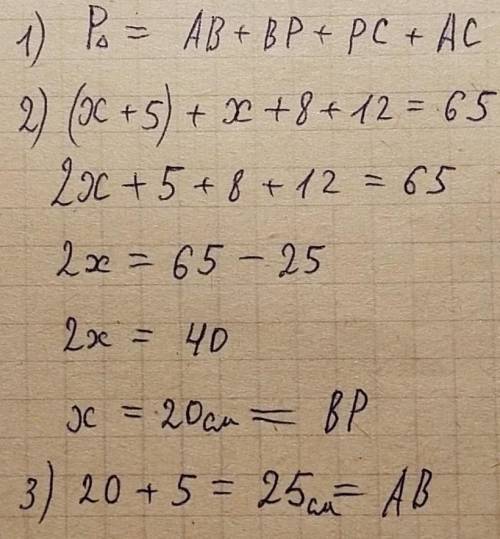 1) P△ = AB + BP + PC + AC
2) (x + 5) + x + 8 + 12 = 65
2x + 5 + 8 + 12 = 65
2x = 65 - 25
2x = 40
x = 20см = BP
3) 20 + 5 = 25см = AB